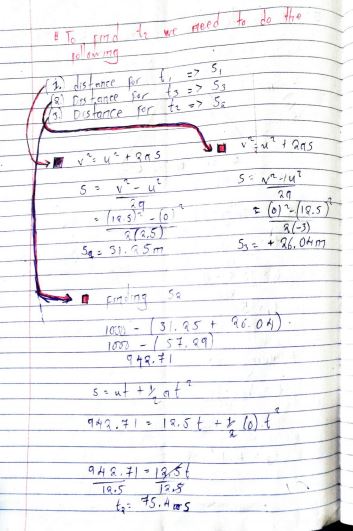 # To find t₂ we need to do the
following
(1) distance for t₁ => S₁
(2) Distance for t₃ => S₃
(3) Distance for t₂ => S₂
v² = u² + 2as
S = v² - u²
2a
= (12.5)² - (0)²
2(2.5)
= 31.25m
v² = u² + 2as
S = v² - u²
2a
= (0)² - (12.5)²
2(-3)
S₃ = + 26.04m
Finding S₂
1000 - (31.25 + 26.04)
1000 - (57.29)
942.71
S = ut + 1/2 at²
942.71 = 12.5t + 1/2 (0) t²
942.71 = 12.5t
12.5 12.5
t₂ = 75.4